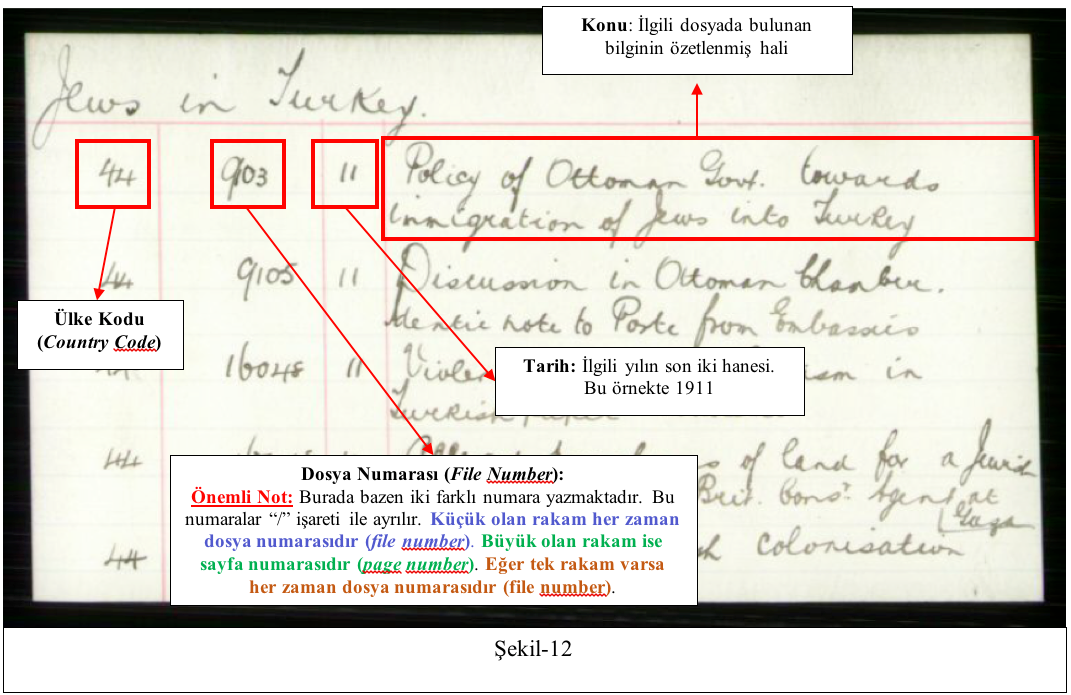 Konu: İlgili dosyada bulunan
bilginin özetlenmiş hali
Jews in Turkey.
44 9103 11 Policy of Ottoman Govt. towards
immigration of Jews into Turkey
44 9105 11 Discussion in Ottoman Chamber.
Identic note to Porte from Embassies
Ülke Kodu
(Country Code)
Tarih: İlgili yılın son iki hanesi.
Bu örnekte 1911
16048 11 in
Turkish
44 of land for a Jewish
Brit. Cons. Agent at
Gaza
44 colonisation
Dosya Numarası (File Number):
Önemli Not: Burada bazen iki farklı numara yazmaktadır. Bu
numaralar “/” işareti ile ayrılır. Küçük olan rakam her zaman
dosya numarasıdır (file number). Büyük olan rakam ise
sayfa numarasıdır (page number). Eğer tek rakam varsa
her zaman dosya numarasıdır (file number).
Şekil-12